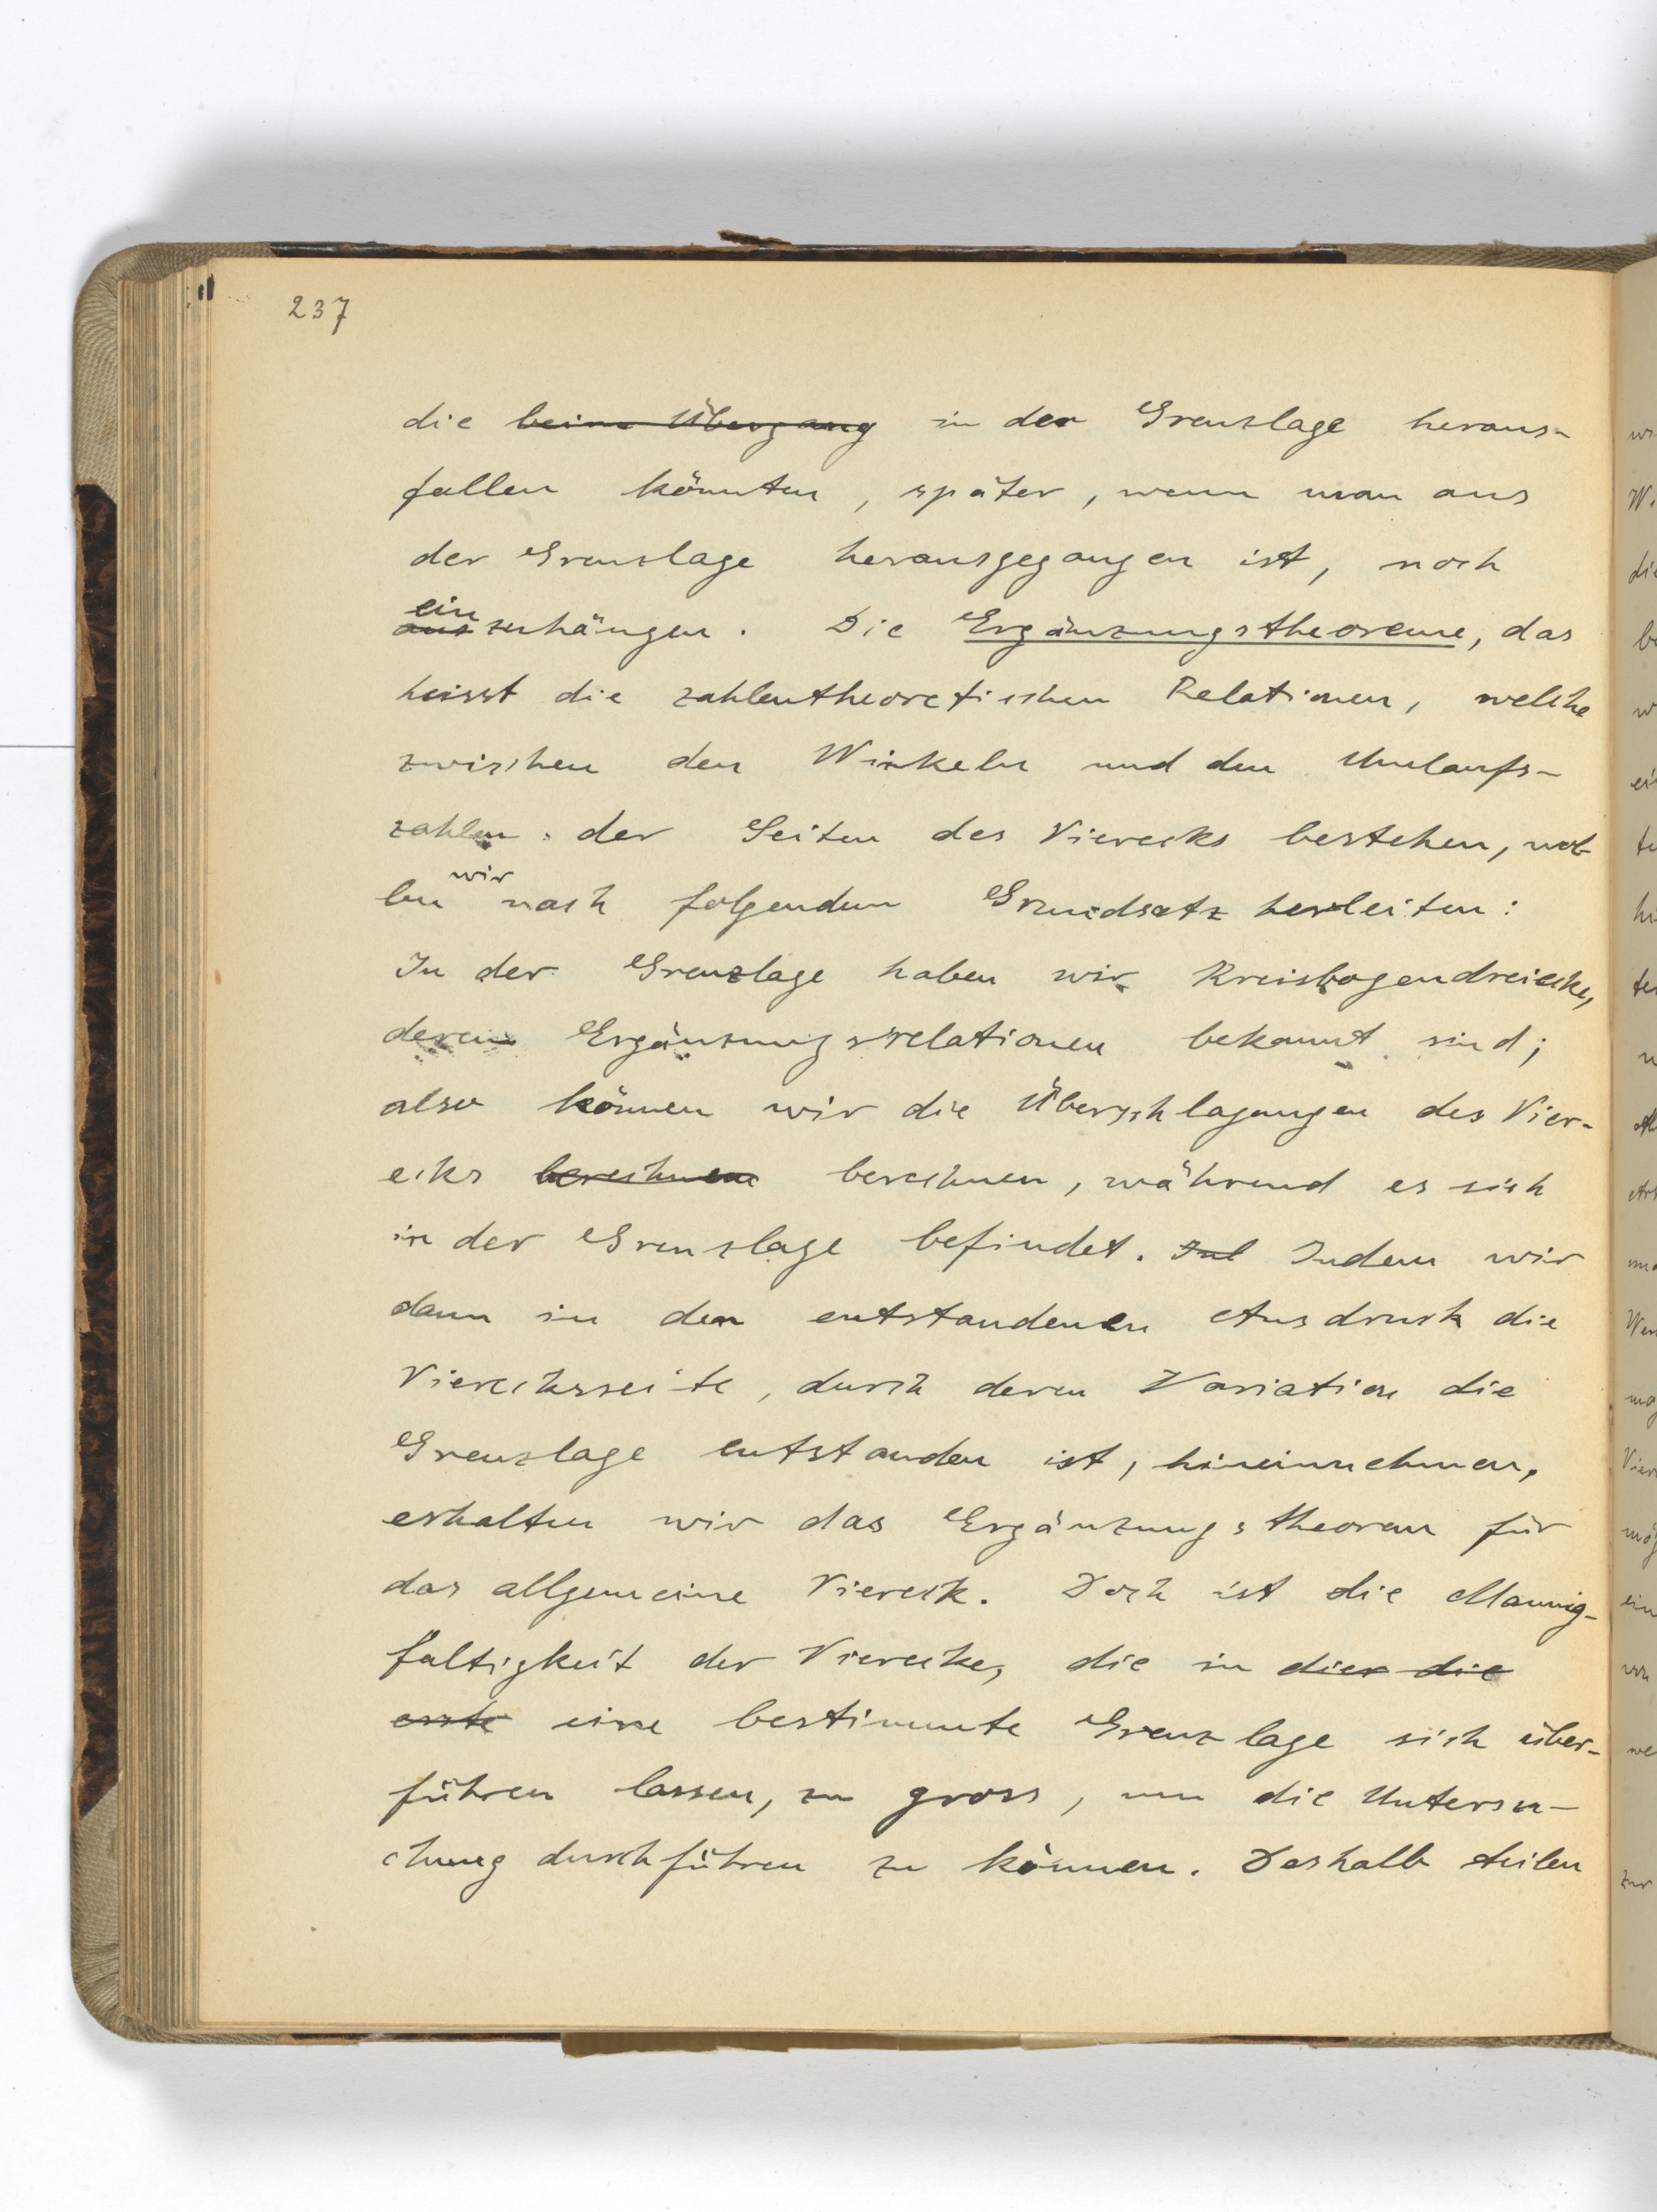 237
die beim Übergang in der Grenzlage heraus-
fallen könnten, später, wenn man aus
der Grenzlage herausgegangen ist, noch
ein
auszuhängen. Die Ergänzungstheoreme, das
heisst die zahlentheoretischen Relationen, welche
zwischen den Winkeln und den Umlaufs-
zahlen der Seiten des Vierecks bestehen, wol-
len wir nach folgendem Grundsatz herleiten:
In der Grenzlage haben wir Kreisbogendreiecke,
deren Ergänzungsrelationen bekannt sind;
also können wir die Überschlagungen des Vier-
ecks berechnen berechnen, während es sich
in der Grenzlage befindet. Ind Indem wir
dann in den entstandenen Ausdruck die
Vierecksseite, durch deren Variation die
Grenzlage entstanden ist, hineinnehmen,
erhalten wir das Ergänzungstheorem für
das allgemeine Viereck. Doch ist die Mannig-
faltigkeit der Vierecke, die in dier die
erste eine bestimmte Grenzlage sich über-
führen lassen, zu gross, um die Untersu-
chung durchführen zu können. Deshalb teilen